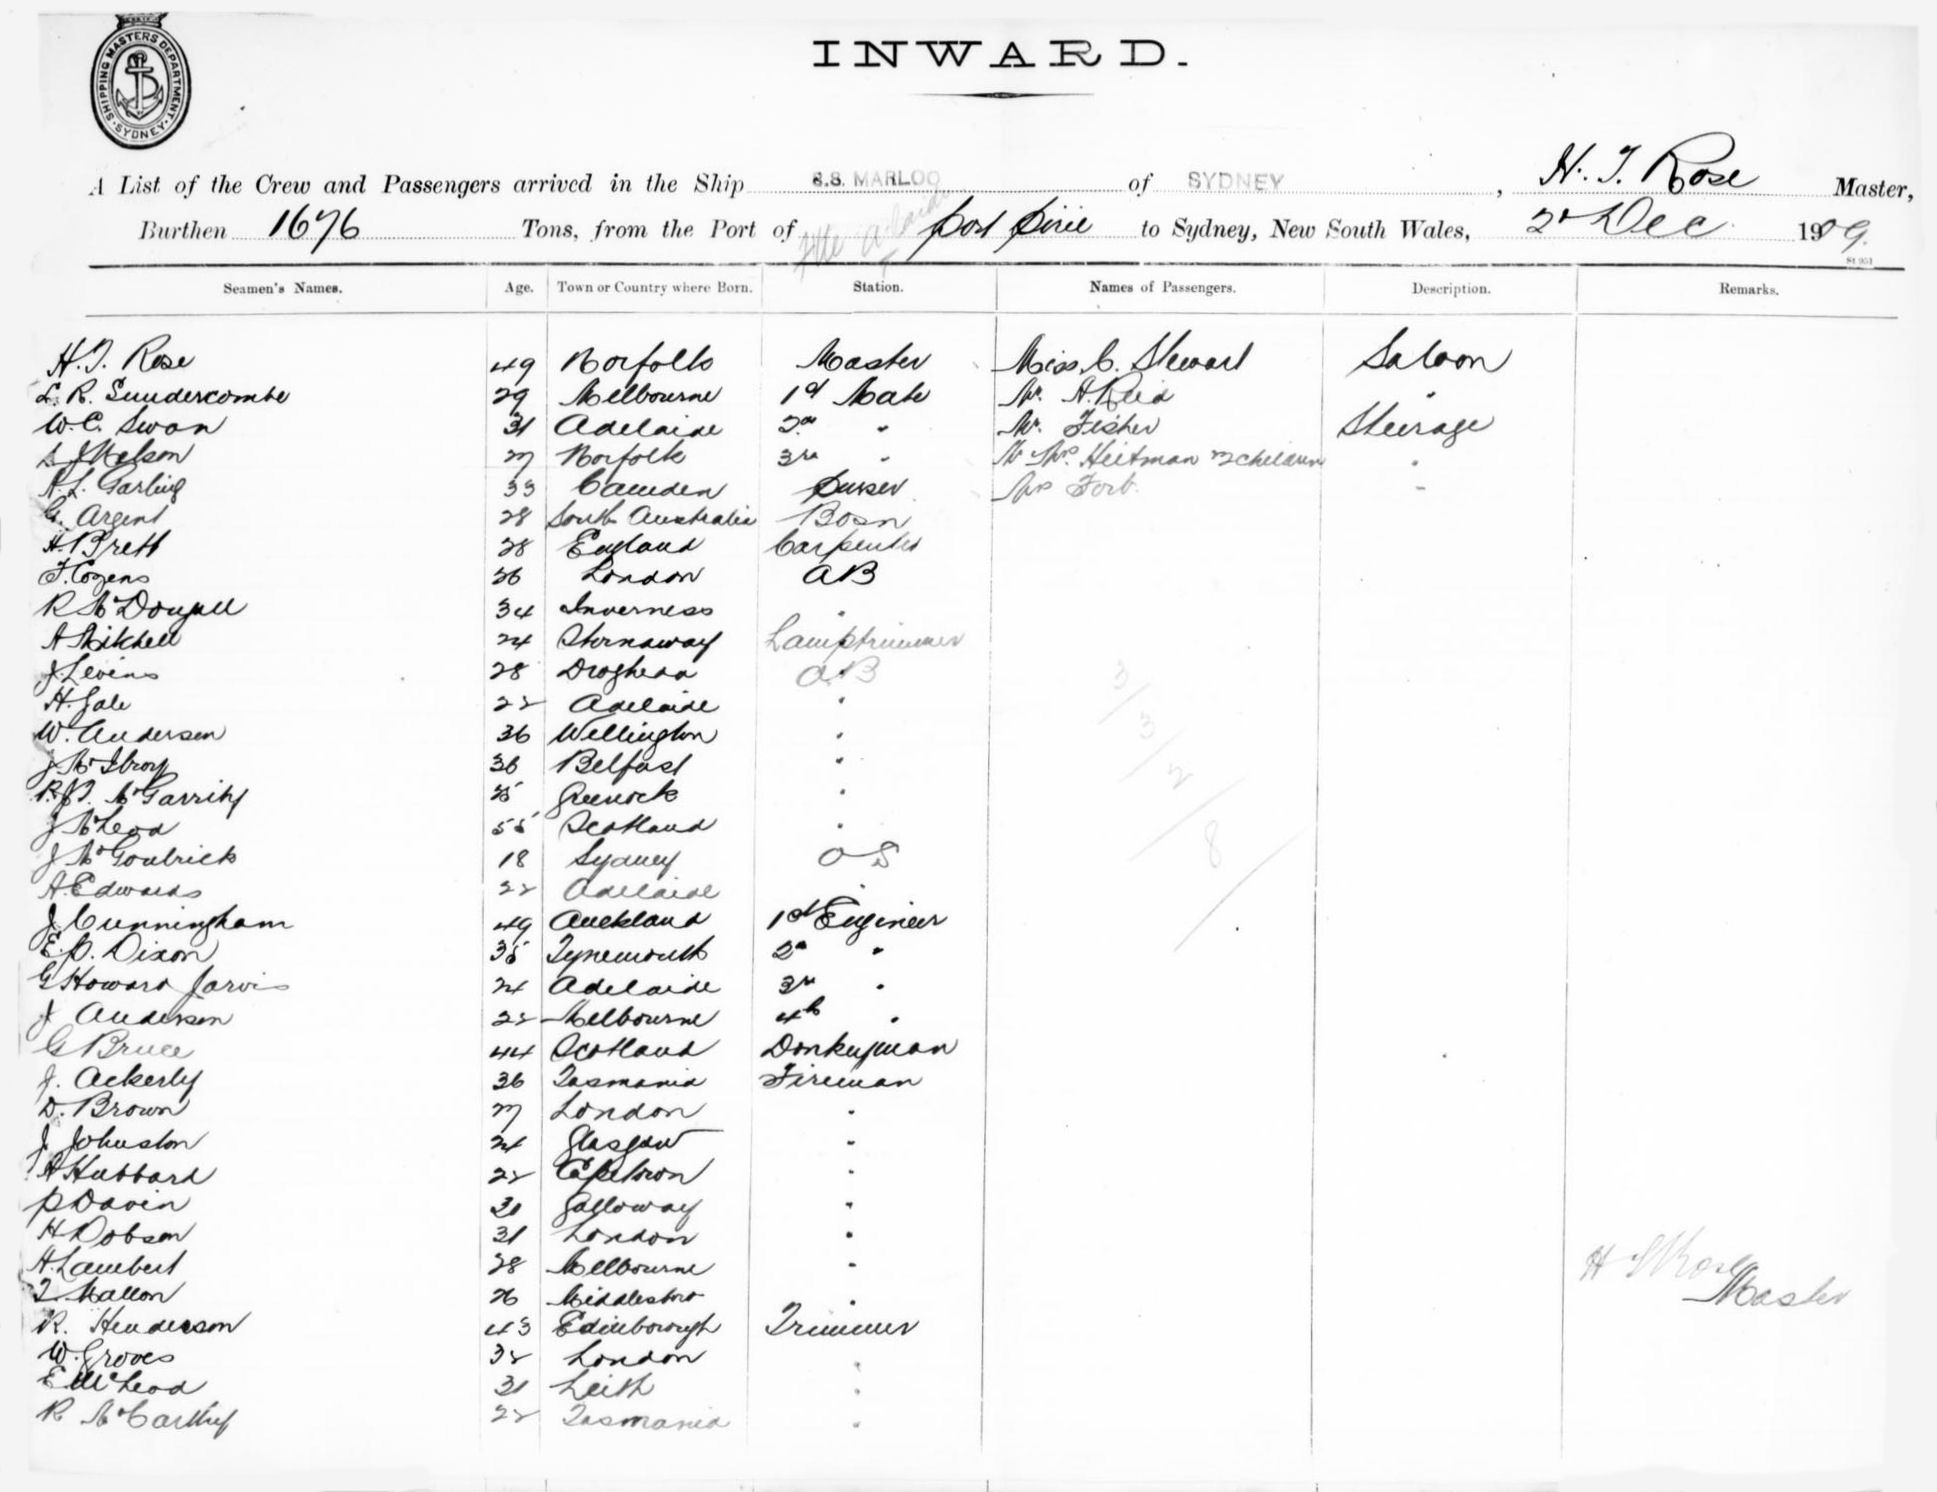 SHIPPING MASTERS DEPARTMENT
SYDNEY
INWARD.
A List of the Crew and Passengers arrived in the Ship S.S. MARLOO of SYDNEY, H. T. Rose Master,
Burthen 1676 Tons, from the Port of Port Pirie to Sydney, New South Wales, 2d Dec 1909.
St 951
Seamen's Names. Age. Town or Country where Born. Station. Names of Passengers. Description. Remarks.
H. T. Rose 49 Norfolk Master Miss C. Stewart Saloon
L. R. Sundercombe 29 Melbourne 1st Mate Mr. A. Reid "
W. C. Swan 31 Adelaide 2nd " Mr. Fisher Steerage
27 Norfolk 3rd " Mr Mrs Heitman children "
A. L. Garling 33 Camden Purser Mrs "
G. Argent 28 South Australia Bosn
H. Brett 28 England Carpenter
F. Cozens 26 London AB
R McDougall 34 Inverness "
A Mitchell 24 Stornaway Lamptrimmer
J Levins 28 Drogheda AB
H. Gale 22 Adelaide "
W. Anderson 36 Wellington "
J McIlroy 36 Belfast "
McGarrity 25 Greenock "
J McLeod 55 Scotland "
J McGoulrick 18 Sydney OS
A. Edwards 22 Adelaide "
J Cunningham 49 Auckland 1st Engineer
E. P. Dixon 35 Tynemouth 2nd "
G Howard Jarvis 24 Adelaide 3rd "
J Anderson 22 Melbourne 4th "
G Bruce 44 Scotland Donkeyman
J. Ackerly 36 Tasmania Fireman
D. Brown 27 London "
J Johnston 24 Glasgow "
A Hubbard 22 Capetown "
P Davin 30 Galloway "
H Dobson 31 London "
H. Lambert 28 Melbourne "
T. Mallon 26 Middlesboro "
R. Henderson 43 Edinborough Trimmer
W. Groves 32 London "
E McLeod 31 Leith "
R McCarthy 22 Tasmania "
3/3/2/8/
H T Rose
Master